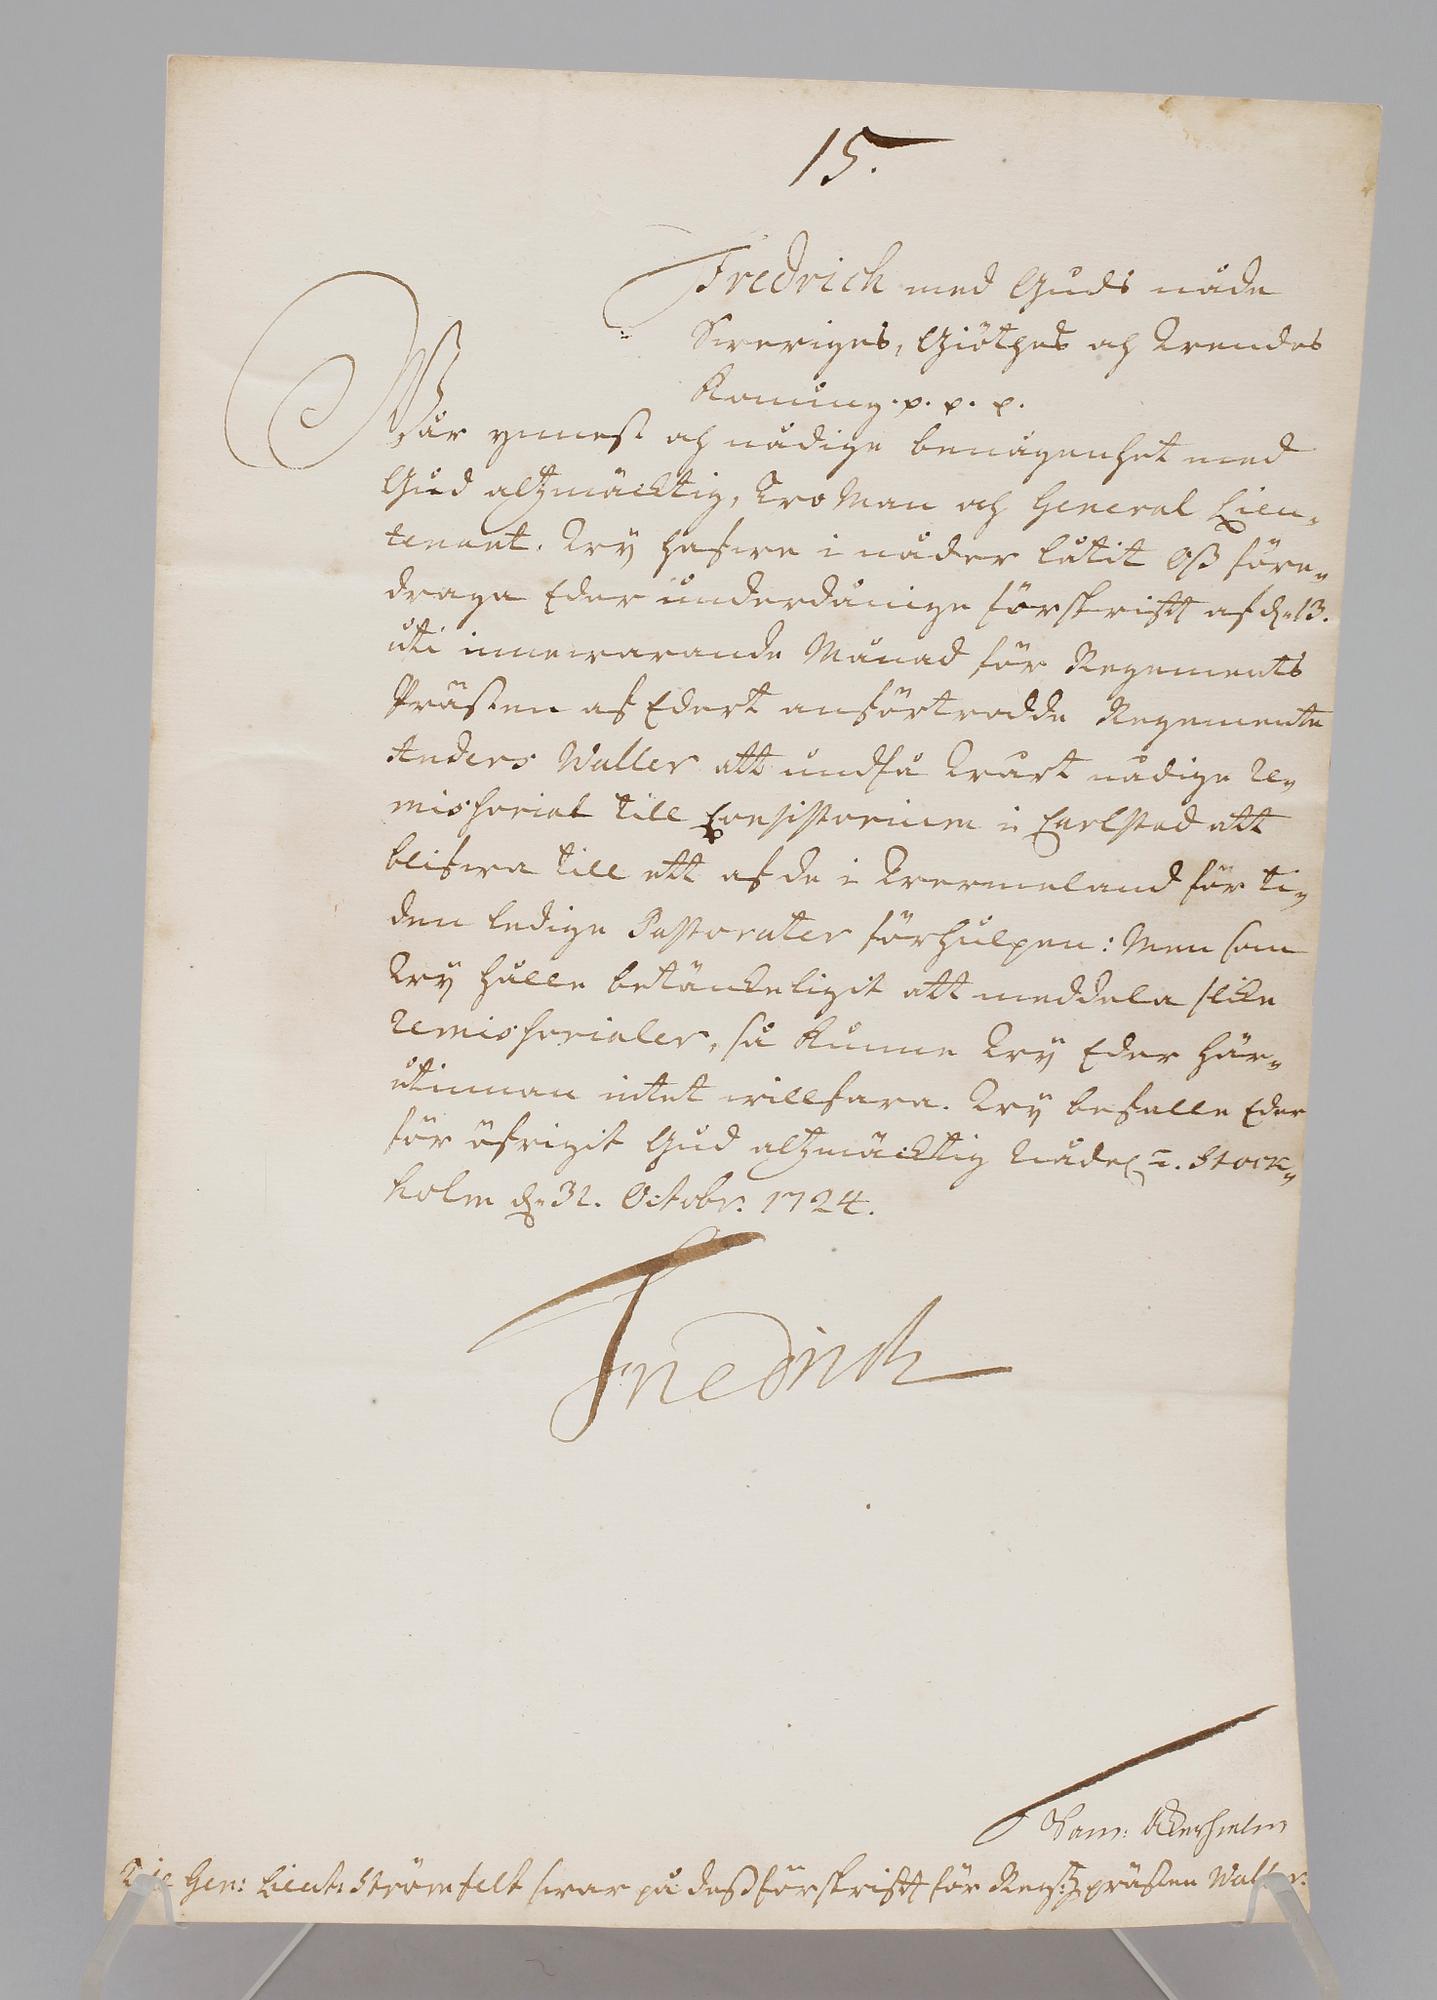 15.
Fredrich med Guds nåde
Sweriges, Giöthes och Wendes
Konung. p. p. p.
Wår ynnest och nådige benägenhet med
Gud alzmächtig, Tro Man och General Lieu-
tenant. Wÿ hafwe i nåder låtit Oß före-
draga Eder underdånige förskrifft af d. 13.
uti innewarande Månad för Regements
Prästen af Edert anförtrodde Regemente
Anders Waller att undfå Wårt nådige Re-
missorial till Consistorium i Carlstad att
blifwa till ett af de i Wermeland för ti-
den ledige Pastorater förhulpen: Men som
Wÿ hålle betänckeligit att meddela slike
Remissorialer, så kunne Wÿ Eder här-
utinnan intet willfara. Wÿ befalle Eder
för öfrigit Gud alzmächtig Nådel. Stock-
holm d. 31. Octobr. 1724.
Friedrich
Sam: Åkerhielm
Till Gen: Lieut: Strömfelt swar på deß förskrifft för Regtz prästen Waller.